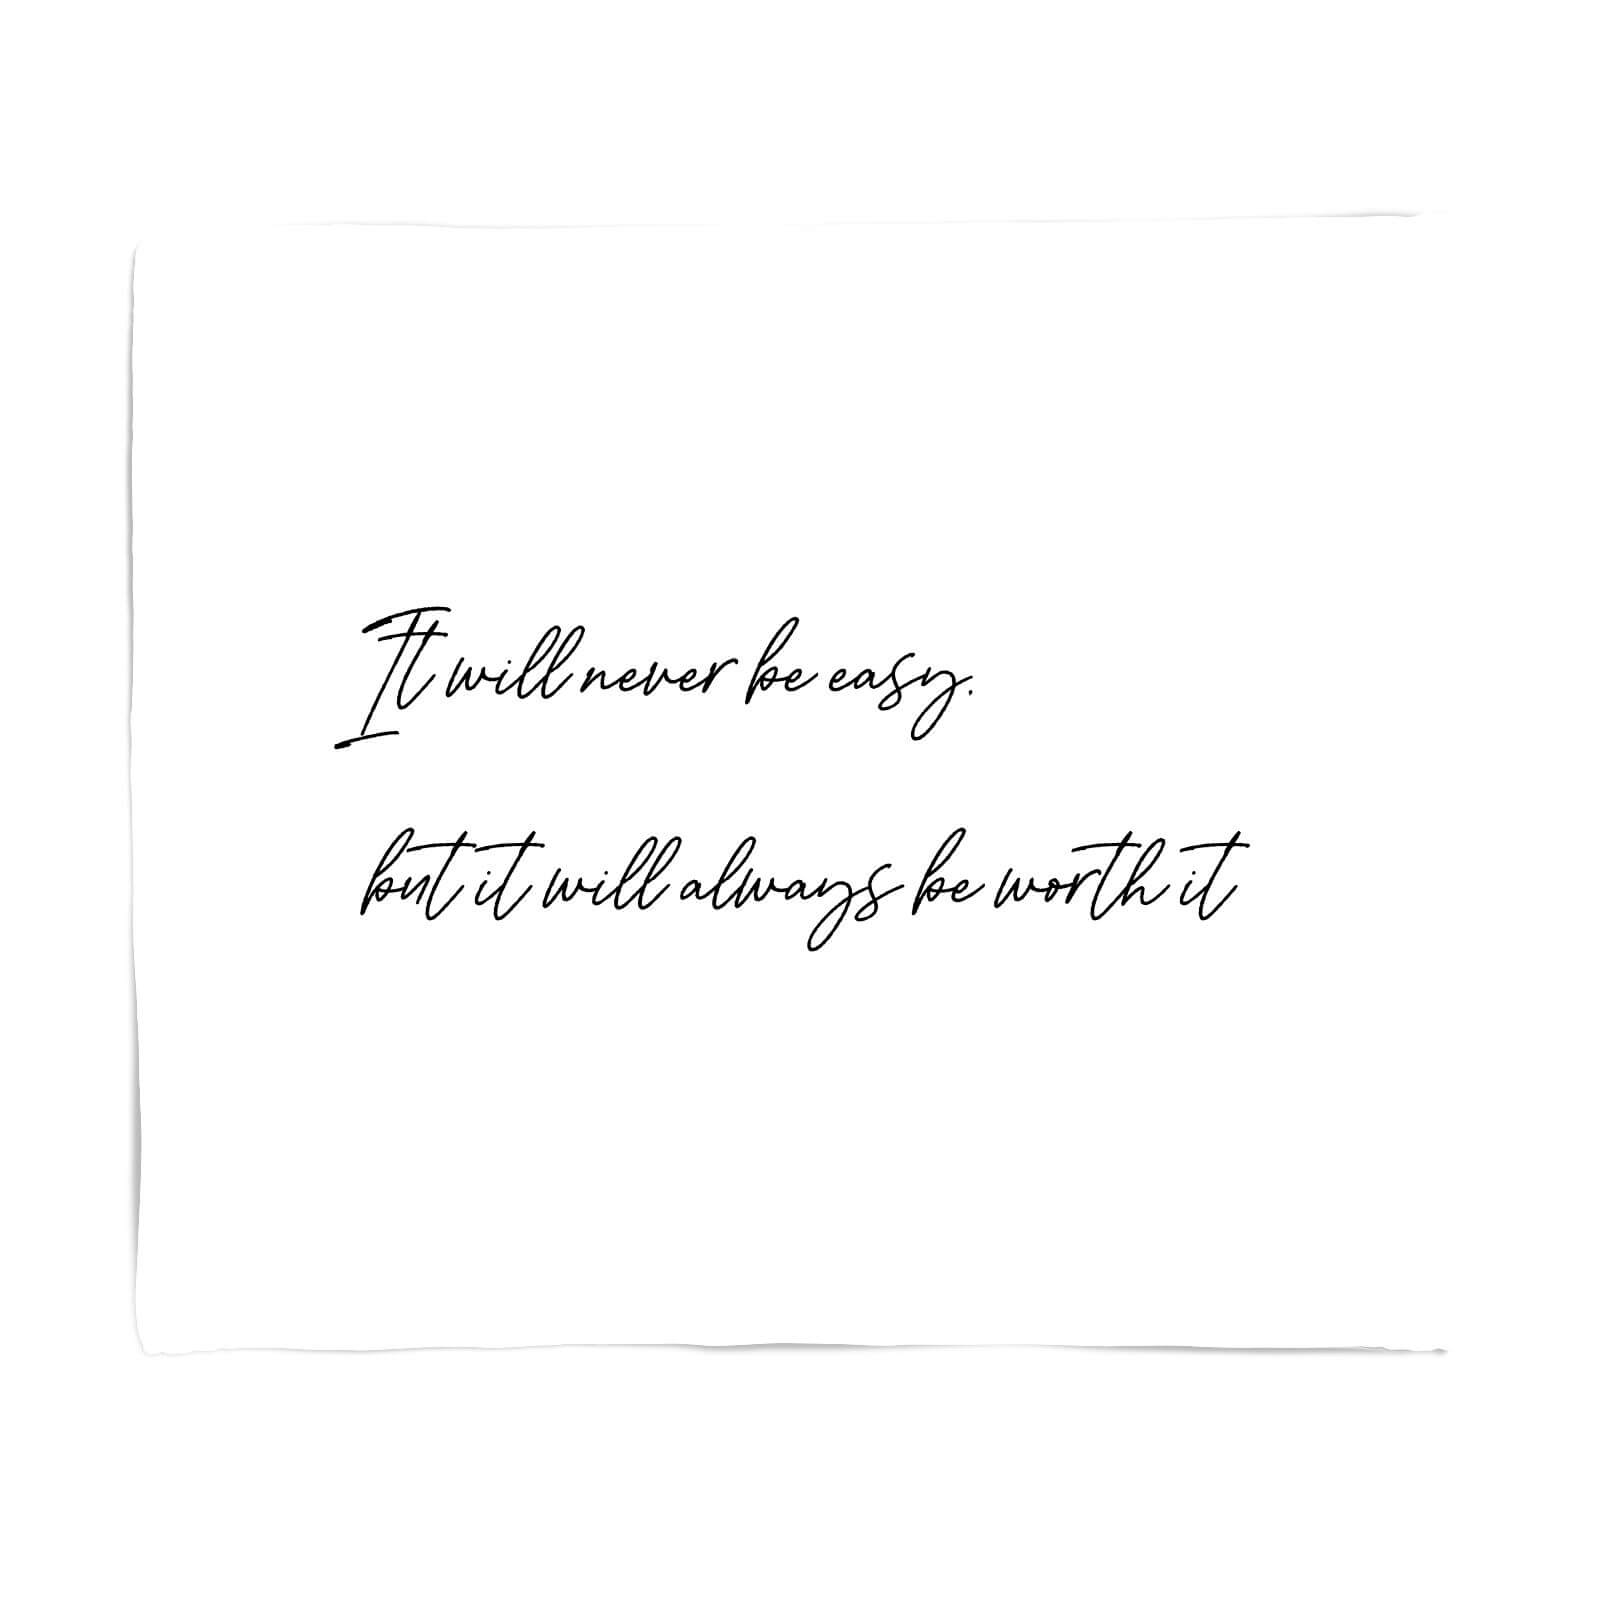 It will never be easy.
but it will always be worth it